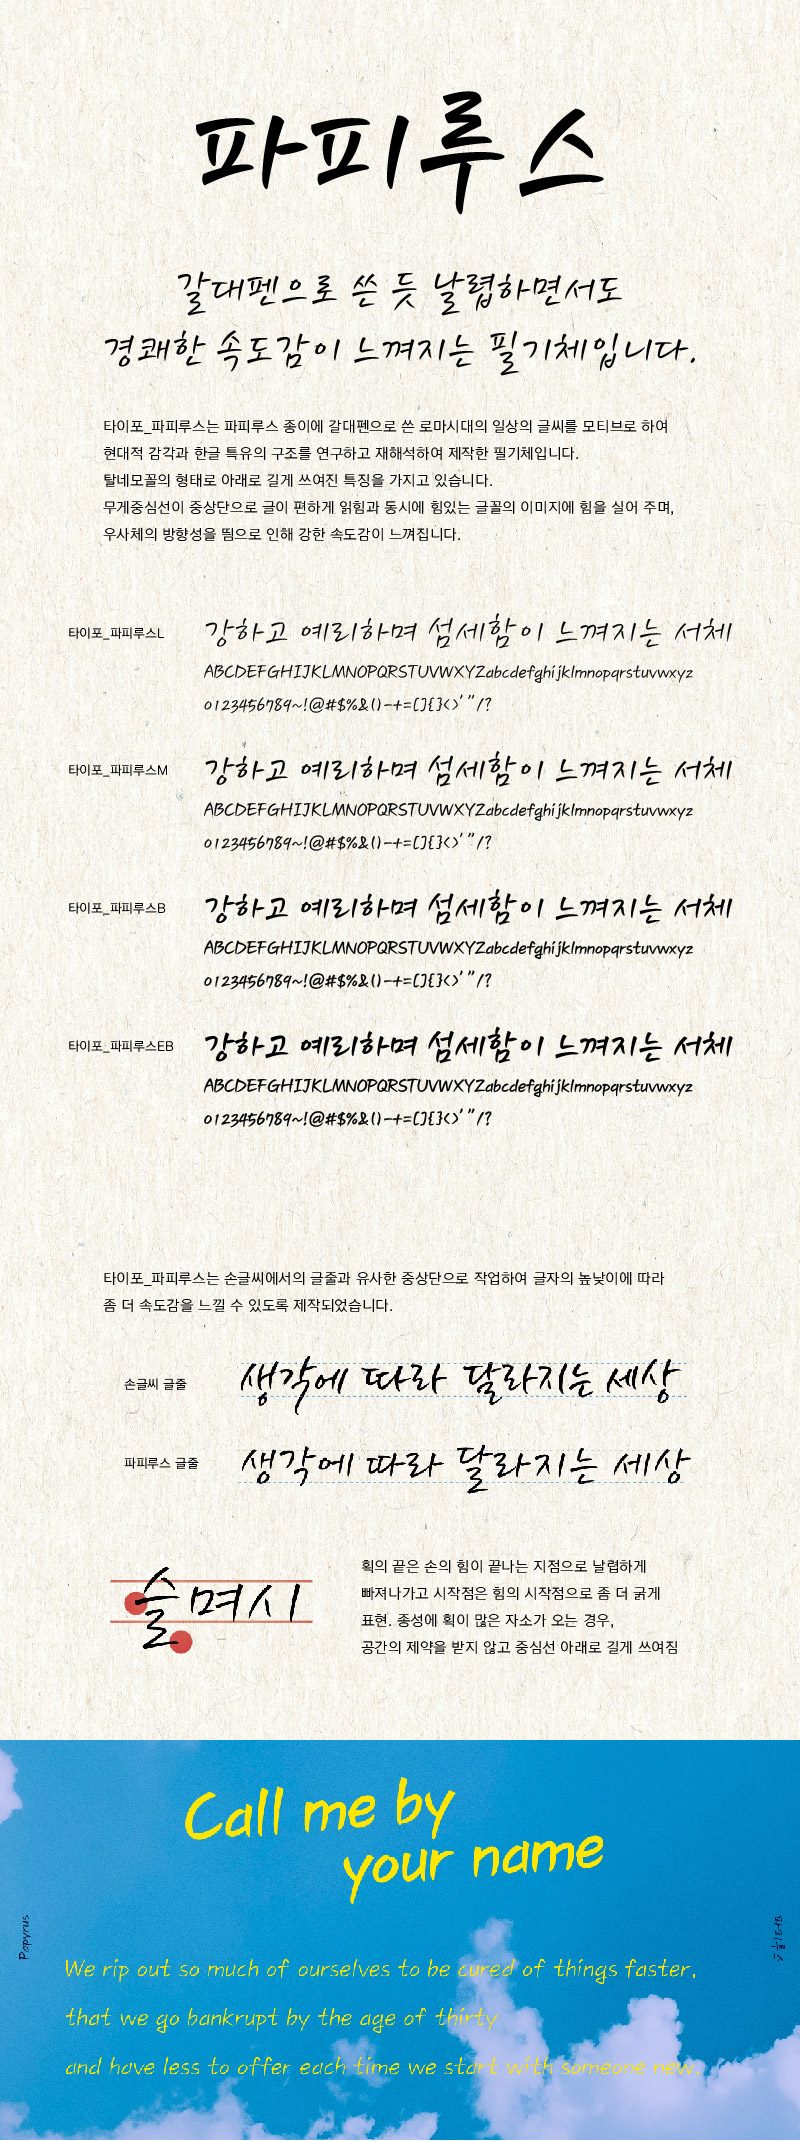 파피루스
갈대펜으로 쓴 듯 날렵하면서도
경쾌한 속도감이 느껴지는 필기체입니다.
타이포_파피루스는 파피루스 종이에 갈대펜으로 쓴 로마시대의 일상의 글씨를 모티브로 하여
현대적 감각과 한글 특유의 구조를 연구하고 재해석하여 제작한 필기체입니다.
탈네모꼴의 형태로 아래로 길게 쓰여진 특징을 가지고 있습니다.
무게중심선이 중상단으로 글이 편하게 읽힘과 동시에 힘있는 글꼴의 이미지에 힘을 실어 주며,
우사체의 방향성을 띔으로 인해 강한 속도감이 느껴집니다.
타이포_파피루스L
강하고 예리하며 섬세함이 느껴지는 서체
ABCDEFGHIJKLMNOPQRSTUVWXYZabcdefghijklmnopqrstuvwxyz
0123456789~!@#$%&()-+=[]{}<>'"/?
타이포_파피루스M
강하고 예리하며 섬세함이 느껴지는 서체
ABCDEFGHIJKLMNOPQRSTUVWXYZabcdefghijklmnopqrstuvwxyz
0123456789~!@#$%&()-+=[]{}<>'"/?
타이포_파피루스B
강하고 예리하며 섬세함이 느껴지는 서체
ABCDEFGHIJKLMNOPQRSTUVWXYZabcdefghijklmnopqrstuvwxyz
0123456789~!@#$%&()-+=[]{}<>'"/?
타이포_파피루스EB
강하고 예리하며 섬세함이 느껴지는 서체
ABCDEFGHIJKLMNOPQRSTUVWXYZabcdefghijklmnopqrstuvwxyz
0123456789~!@#$%&()-+=[]{}<>'"/?
타이포_파피루스는 손글씨에서의 글줄과 유사한 중상단으로 작업하여 글자의 높낮이에 따라
좀 더 속도감을 느낄 수 있도록 제작되었습니다.
손글씨 글줄
생각에 따라 달라지는 세상
파피루스 글줄
생각에 따라 달라지는 세상
술며시
획의 끝은 손의 힘이 끝나는 지점으로 날렵하게
빠져나가고 시작점은 힘의 시작점으로 좀 더 굵게
표현. 종성에 획이 많은 자소가 오는 경우,
공간의 제약을 받지 않고 중심선 아래로 길게 쓰여짐
Call me by
your name
Papyrus
파피루스
We rip out so much of ourselves to be cured of things faster,
that we go bankrupt by the age of thirty
and have less to offer each time we start with someone new.